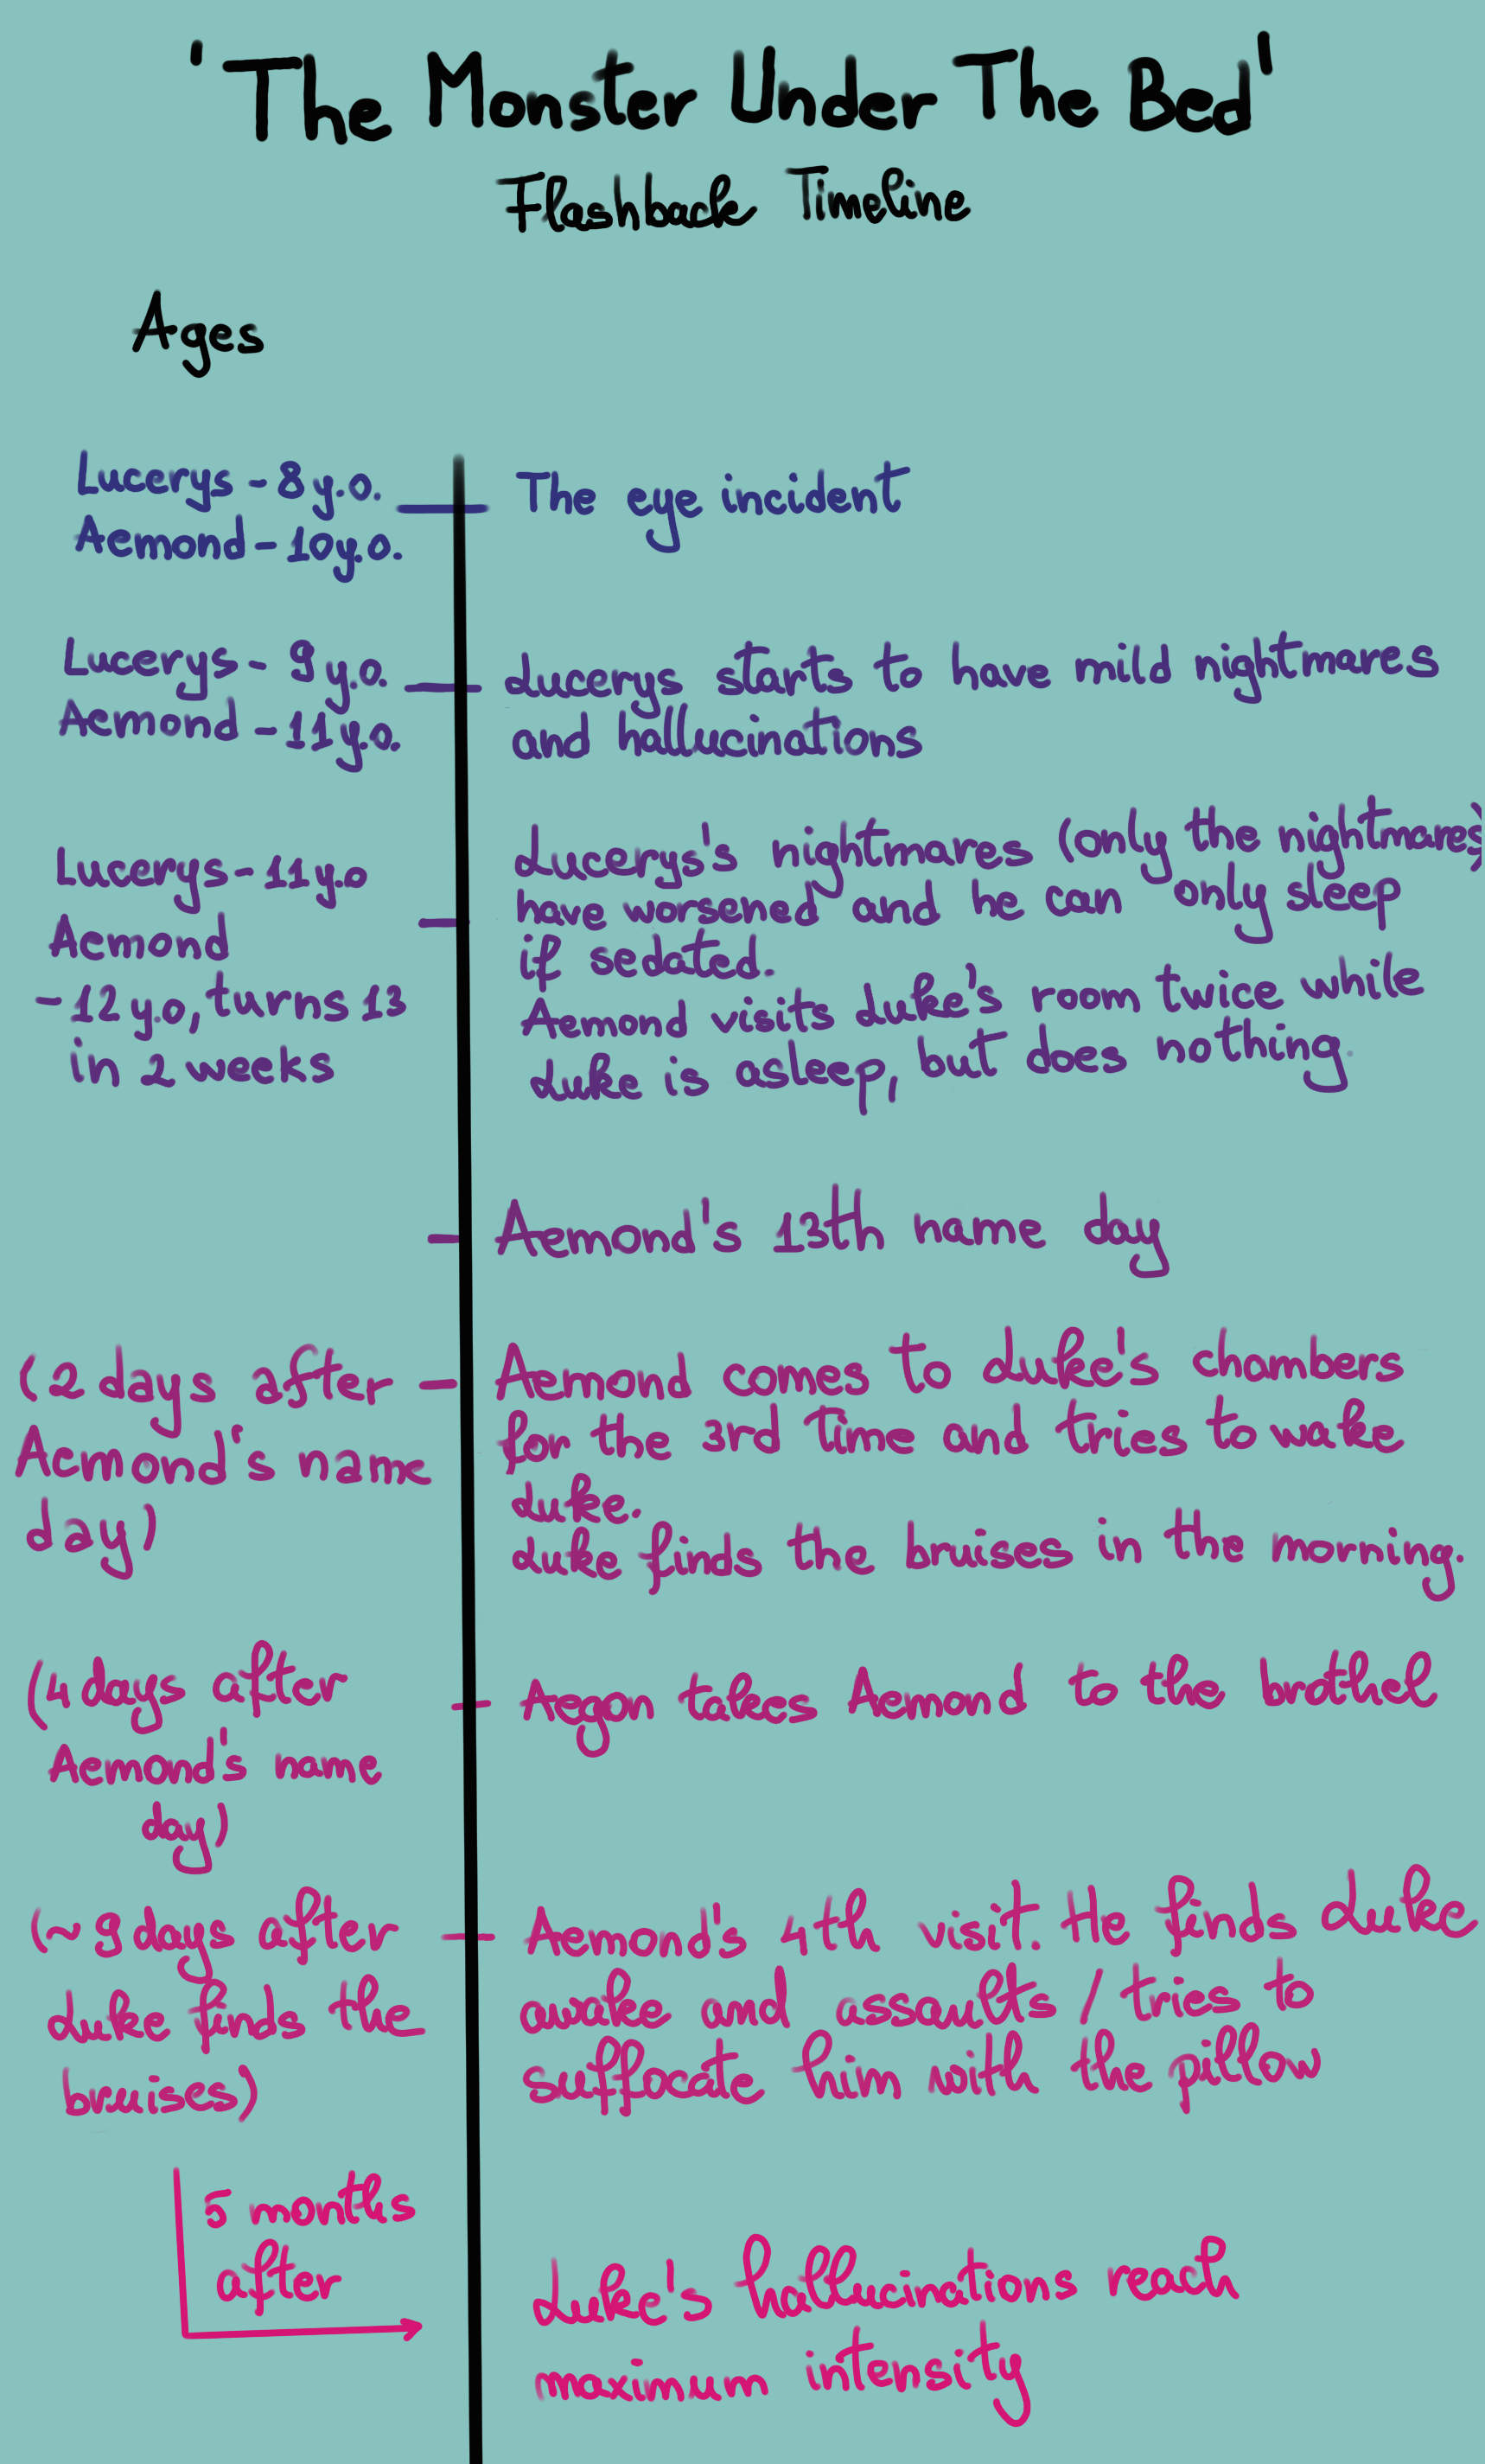 'The Monster Under The Bed'
Flashback Timeline
Ages
Lucerys - 8 y.o.
Aemond - 10 y.o.
The eye incident
Lucerys - 9 y.o.
Aemond - 11 y.o.
Lucerys starts to have mild nightmares
and hallucinations
Lucerys - 11 y.o
Aemond
- 12 y.o, turns 13
in 2 weeks
Lucerys's nightmares (only the nightmares)
have worsened and he can only sleep
if sedated.
Aemond visits Luke's room twice while
Luke is asleep, but does nothing.
Aemond's 13th name day
(2 days after
Aemond's name
day)
Aemond comes to Luke's chambers
for the 3rd time and tries to wake
Luke.
Luke finds the bruises in the morning.
(4 days after
Aemond's name
day)
Aegon takes Aemond to the brothel
(~ 9 days after
Luke finds the
bruises)
Aemond's 4th visit. He finds Luke
awake and assaults / tries to
suffocate him with the pillow
5 months
after
Luke's hallucinations reach
maximum intensity